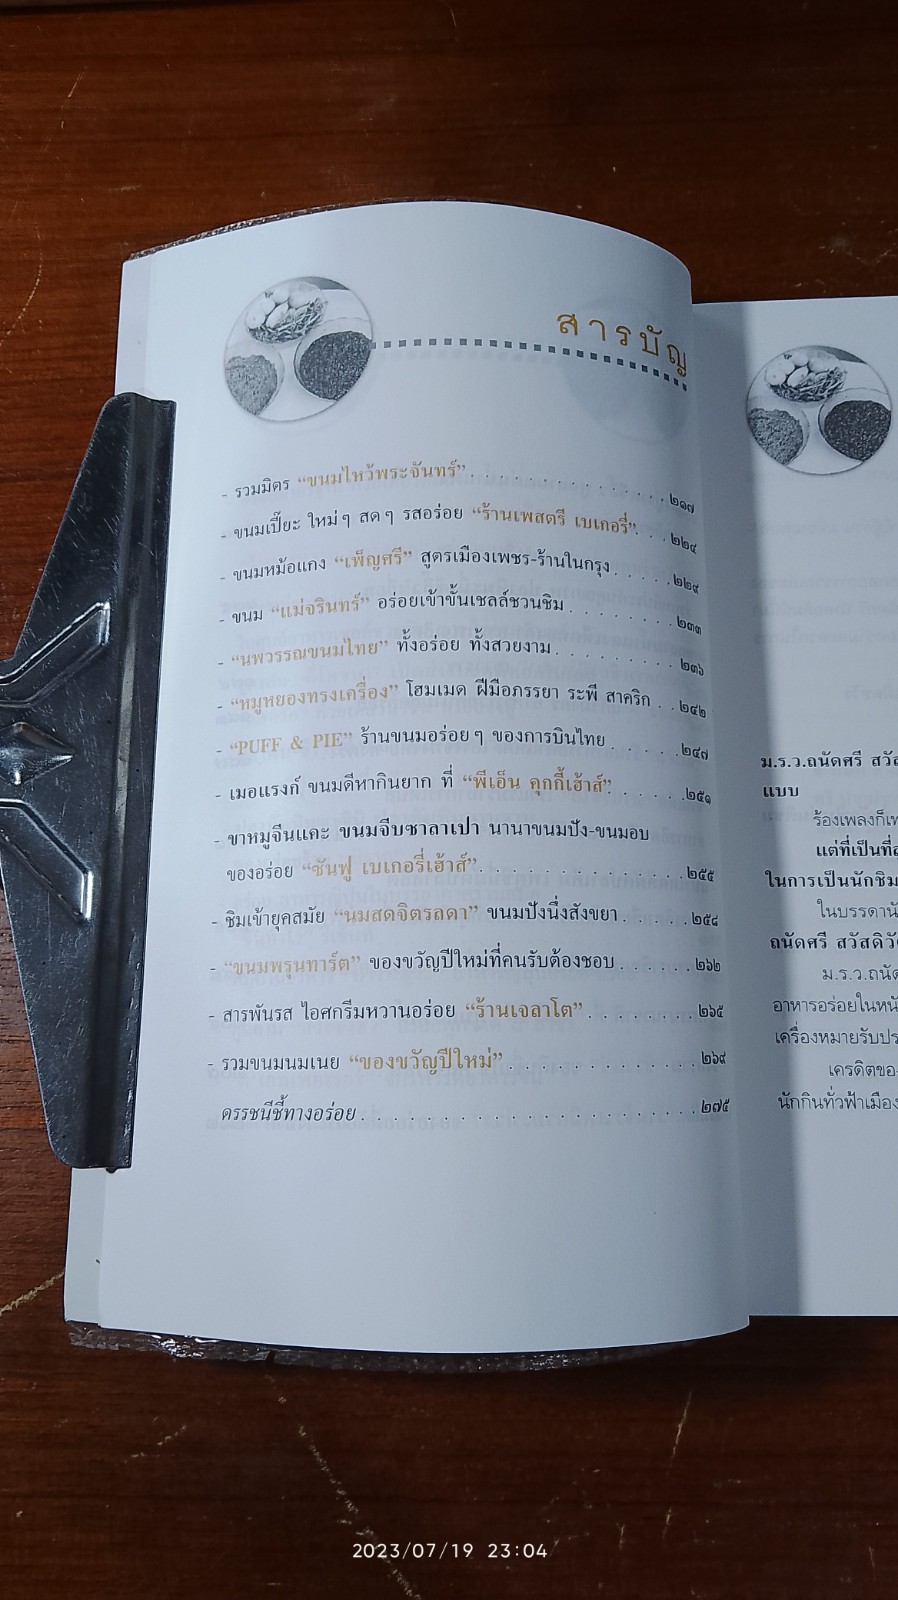 สารบัญ
- รวมมิตร “ขนมไหว้พระจันทร์” . . . . . . . . . . . . . . . ๒๑๗
- ขนมเปี๊ยะ ใหม่ๆ สดๆ รสอร่อย “ร้านเพสตรี เบเกอรี่” . . . ๒๒๔
- ขนมหม้อแกง “เพ็ญศรี” สูตรเมืองเพชร-ร้านในกรุง . . . . . ๒๒๙
- ขนม “แม่จรินทร์” อร่อยเข้าขั้นเชลล์ชวนชิม . . . . . . . . ๒๓๓
- “นพวรรณขนมไทย” ทั้งอร่อย ทั้งสวยงาม . . . . . . . . . ๒๓๖
- “หมูหยองทรงเครื่อง” โฮมเมด ฝีมือภรรยา ระพี สาคริก . . ๒๔๒
- “PUFF & PIE” ร้านขนมอร่อยๆ ของการบินไทย . . . . . . ๒๔๗
- เมอแรงก์ ขนมดีหากินยาก ที่ “พีเอ็น คุกกี้เฮ้าส์” . . . . . . ๒๕๑
- ขาหมูจีนแคะ ขนมจีบซาลาเปา นานาขนมปัง-ขนมอบ
ของอร่อย “ซันฟู เบเกอรี่เฮ้าส์” . . . . . . . . . . . . . . . ๒๕๕
- ชิมเข้ายุคสมัย “นมสดจิตรลดา” ขนมปังนึ่งสังขยา . . . . . ๒๕๘
- “ขนมพรุนทาร์ต” ของขวัญปีใหม่ที่คนรับต้องชอบ . . . . . . ๒๖๒
- สารพันรส ไอศกรีมหวานอร่อย “ร้านเจลาโต” . . . . . . . . ๒๖๕
- รวมขนมนมเนย “ของขวัญปีใหม่” . . . . . . . . . . . . . ๒๖๙
ดรรชนีชี้ทางอร่อย . . . . . . . . . . . . . . . . . . . . . . ๒๗๕
ม.ร.ว.ถนัดศรี
แบบ
ร้องเพลงก็
แต่ที่เป็นที่
ในการเป็นนักชิม
ในบรรดา
ถนัดศรี สวัสดิวั
ม.ร.ว.ถนัด
อาหารอร่อยในหนั
เครื่องหมายรับ
เครดิตของ
นักกินทั่วฟ้าเมือง
2023/07/19 23:04